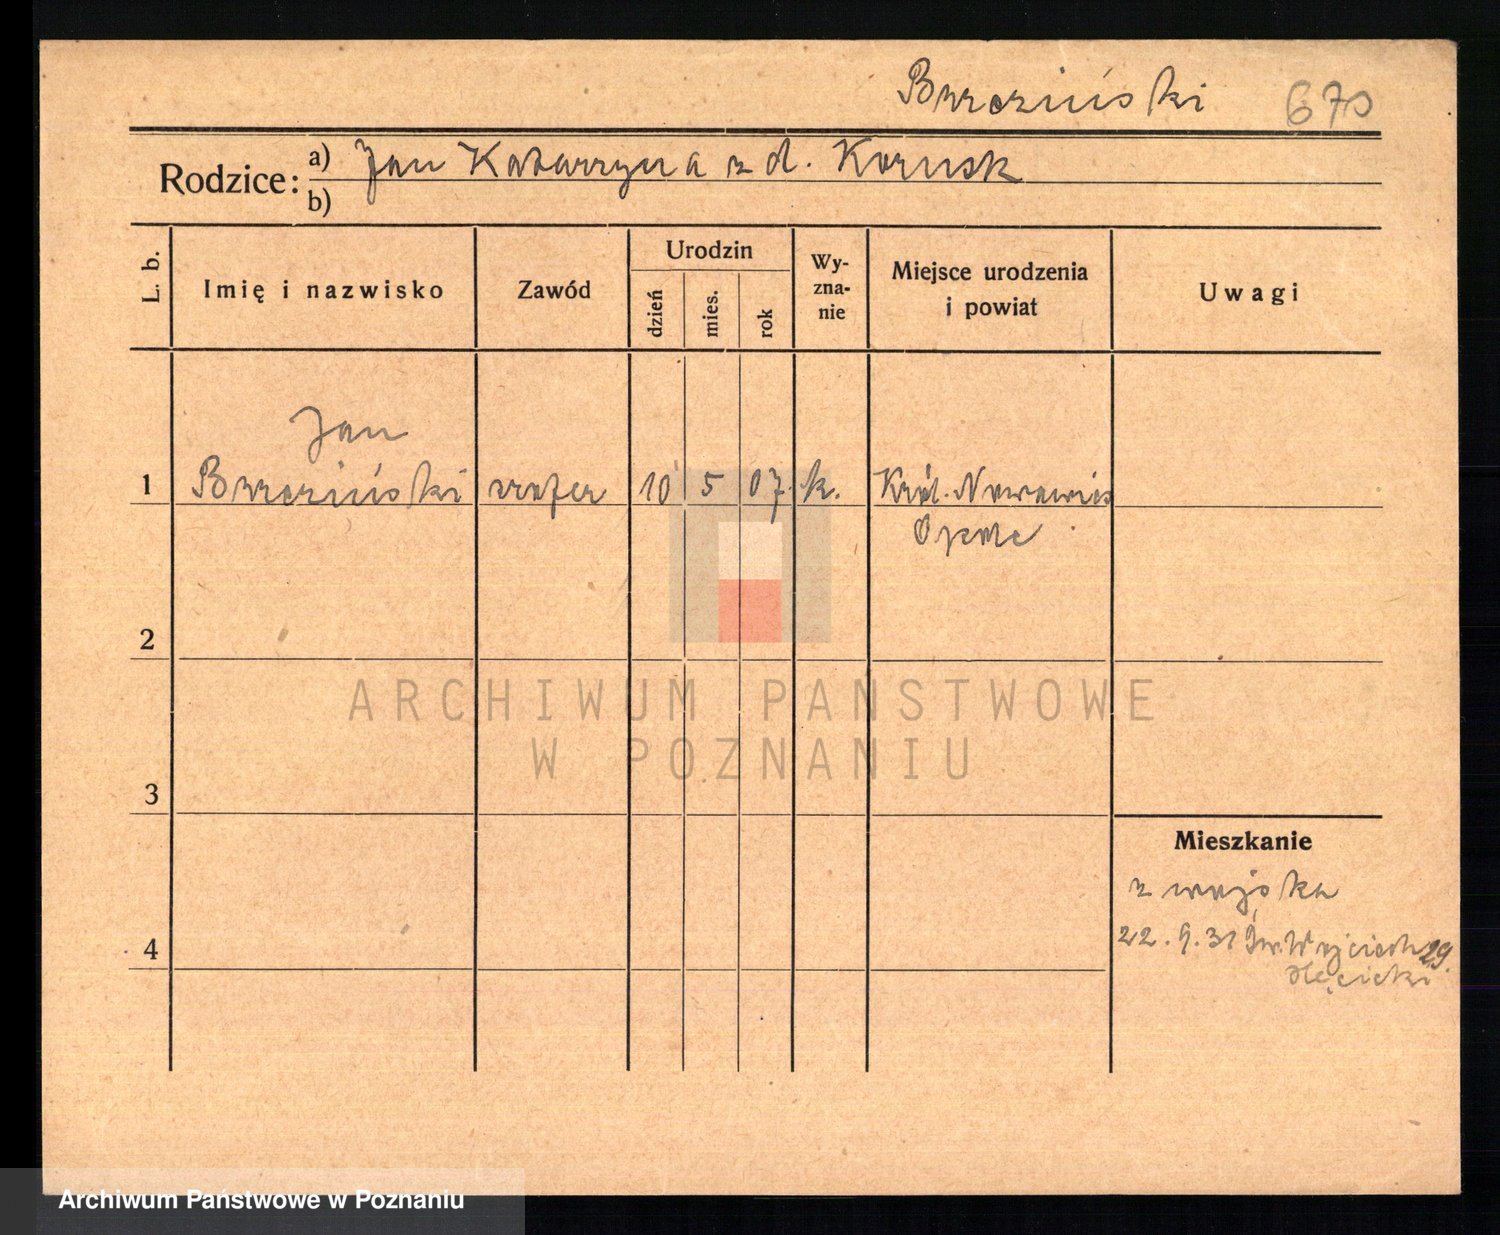 Brzeziński 670
Rodzice:
a) Jan Katarzyna z d. Kornsk
b)
L. b.
Imię i nazwisko
Zawód
Urodzin
dzień
mies.
rok
Wy-
zna-
nie
Miejsce urodzenia
i powiat
Uwagi
Jan
1 Brzeziński szofer 10 5 07. k. Król. Nowawieś
Opole
2
3
4
Mieszkanie
z wojska
22. 9. 31 Św. Wojciech 29.
ARCHIWUM PAŃSTWOWE
W POZNANIU
Archiwum Państwowe w Poznaniu